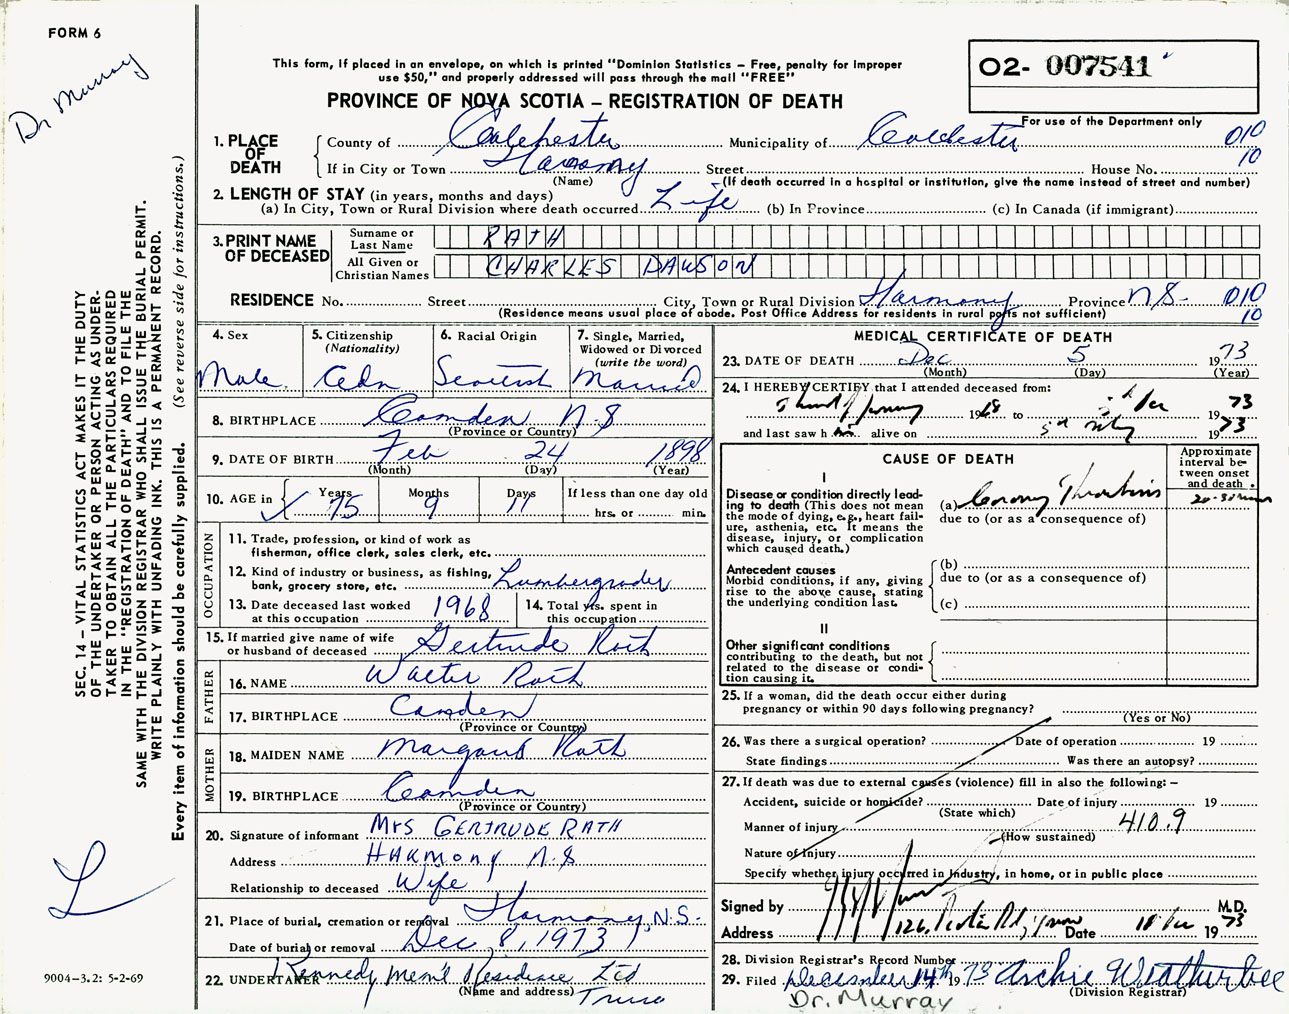 FORM 6
Dr Murray
This form, if placed in an envelope, on which is printed "Dominion Statistics – Free, penalty for improper
use $50," and properly addressed will pass through the mail "FREE"
O2- 007541
For use of the Department only
PROVINCE OF NOVA SCOTIA – REGISTRATION OF DEATH
1. PLACE OF DEATH
County of Colchester Municipality of Colchester 010
If in City or Town Harmony Street House No. 10
(Name) (If death occurred in a hospital or institution, give the name instead of street and number)
2. LENGTH OF STAY (in years, months and days)
(a) In City, Town or Rural Division where death occurred Life (b) In Province (c) In Canada (if immigrant)
3. PRINT NAME OF DECEASED
Surname or Last Name RATH
All Given or Christian Names CHARLES DAWSON
RESIDENCE No. Street City, Town or Rural Division Harmony Province N S- 010
(Residence means usual place of abode. Post Office Address for residents in rural parts not sufficient) 10
4. Sex
Male
5. Citizenship
(Nationality)
Cdn
6. Racial Origin
Scottish
7. Single, Married,
Widowed or Divorced
(write the word)
Married
8. BIRTHPLACE Camden N.S
(Province or Country)
9. DATE OF BIRTH Feb 24 1898
(Month) (Day) (Year)
10. AGE in Years Months Days If less than one day old
75 9 11 hrs. or min.
OCCUPATION
11. Trade, profession, or kind of work as
fisherman, office clerk, sales clerk, etc.
12. Kind of industry or business, as fishing,
bank, grocery store, etc. Lumbergrader
13. Date deceased last worked
at this occupation 1968
14. Total yrs. spent in
this occupation
15. If married give name of wife
or husband of deceased Gertrude Rath
FATHER
16. NAME Walter Rath
17. BIRTHPLACE Camden
(Province or Country)
MOTHER
18. MAIDEN NAME Margaret Rath
19. BIRTHPLACE Camden
(Province or Country)
20. Signature of informant Mrs GERTRUDE RATH
Address HARMONY N.S
Relationship to deceased Wife
21. Place of burial, cremation or removal Harmony, N.S.
Date of burial or removal Dec, 8, 1973
22. UNDERTAKER Kennedy Mem'l Residence Ltd
(Name and address) Truro
MEDICAL CERTIFICATE OF DEATH
23. DATE OF DEATH Dec 5 1973
(Month) (Day) (Year)
24. I HEREBY CERTIFY that I attended deceased from:
19 to 19 73
and last saw h alive on 19 73
CAUSE OF DEATH
Approximate
interval be-
tween onset
and death.
I
Disease or condition directly lead-
ing to death (This does not mean
the mode of dying, e.g., heart fail-
ure, asthenia, etc. It means the
disease, injury, or complication
which caused death.)
(a) Coronary Thrombosis 20-30 min
due to (or as a consequence of)
Antecedent causes
Morbid conditions, if any, giving
rise to the above cause, stating
the underlying condition last.
(b)
due to (or as a consequence of)
(c)
II
Other significant conditions
contributing to the death, but not
related to the disease or condi-
tion causing it.
25. If a woman, did the death occur either during
pregnancy or within 90 days following pregnancy?
(Yes or No)
26. Was there a surgical operation? Date of operation 19
State findings Was there an autopsy?
27. If death was due to external causes (violence) fill in also the following: –
Accident, suicide or homicide? Date of injury 19
(State which)
Manner of injury 410.9
(How sustained)
Nature of injury
Specify whether injury occurred in industry, in home, or in public place
Signed by M.D.
Address 126, Rd, Truro Date 10 Dec 19 73
28. Division Registrar's Record Number
29. Filed December 14th 1973 Archie Weatherbee
(Division Registrar)
Dr. Murray
SEC. 14 – VITAL STATISTICS ACT MAKES IT THE DUTY
OF THE UNDERTAKER OR PERSON ACTING AS UNDER-
TAKER TO OBTAIN ALL THE PARTICULARS REQUIRED
IN THE "REGISTRATION OF DEATH" AND TO FILE THE
SAME WITH THE DIVISION REGISTRAR WHO SHALL ISSUE THE BURIAL PERMIT.
WRITE PLAINLY WITH UNFADING INK. THIS IS A PERMANENT RECORD.
Every item of information should be carefully supplied. (See reverse side for instructions.)
L
9004-3.2: 5-2-69